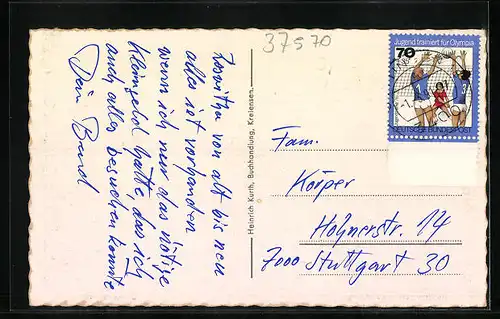 37570
Jugend trainiert für Olympia
70
DEUTSCHE BUNDESPOST
von alt bis neu
alles ist vorhanden
wenn ich nur das nötige
Kleingeld hätte, das ich
auch alles besuchen könnte
Dein Bernd
Heinrich Kurth, Buchhandlung, Kreiensen.
Fam.
Körper
Hohnerstr. 14
7000 Stuttgart 30